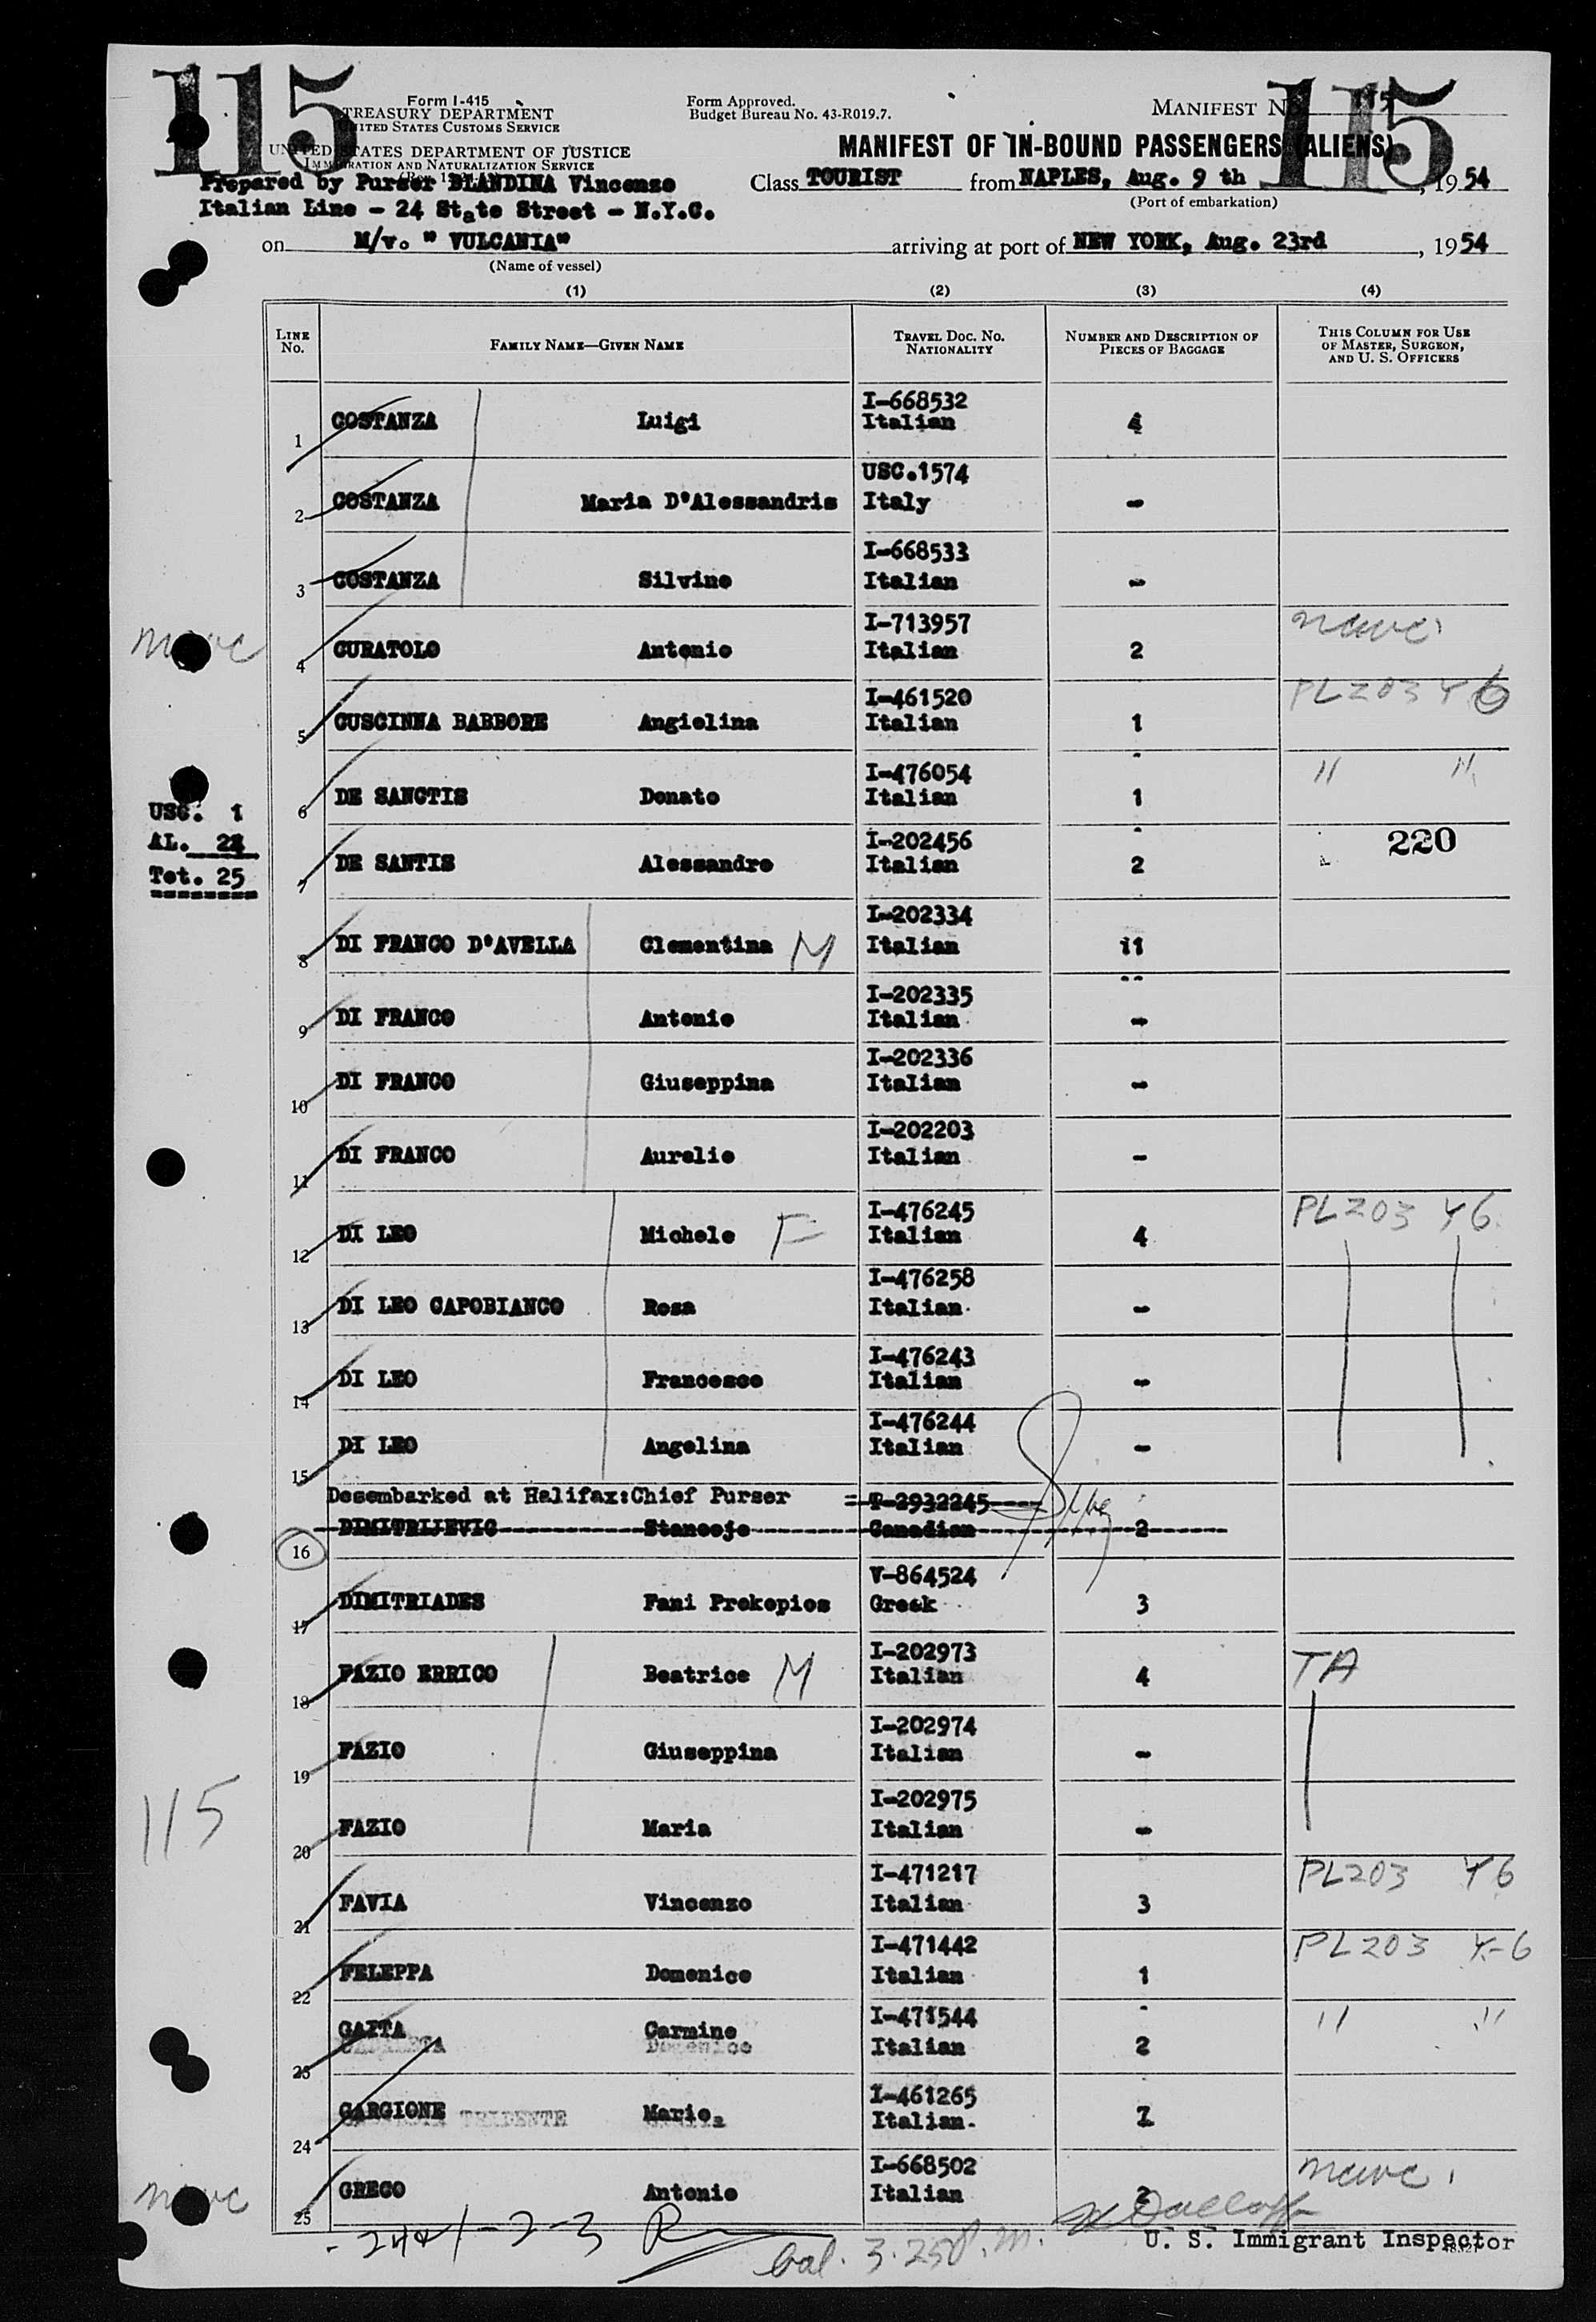 115
115
Form I-415
TREASURY DEPARTMENT
UNITED STATES CUSTOMS SERVICE
UNITED STATES DEPARTMENT OF JUSTICE
IMMIGRATION AND NATURALIZATION SERVICE
Form Approved.
Budget Bureau No. 43-R019.7.
MANIFEST
MANIFEST OF IN-BOUND PASSENGERS (ALIENS)
Prepared by Purser BLANDINA Vincenzo
Italian Line - 24 State Street - N.Y.C.
Class TOURIST from NAPLES, Aug. 9 th, 1954
(Port of embarkation)
on M/v. " VULCANIA" arriving at port of NEW YORK, Aug. 23rd, 1954
(Name of vessel)
(1) (2) (3) (4)
LINE No. FAMILY NAME—GIVEN NAME TRAVEL DOC. NO. NATIONALITY NUMBER AND DESCRIPTION OF PIECES OF BAGGAGE THIS COLUMN FOR USE OF MASTER, SURGEON, AND U. S. OFFICERS
1 COSTANZA Luigi I-668532 Italian 4
2 COSTANZA Maria D'Alessandris USC.1574 Italy -
3 COSTANZA Silvino I-668533 Italian -
4 CURATOLO Antonio I-713957 Italian 2
5 CUSCINNA BABBORE Angiolina I-461520 Italian 1 PL203 Y6
6 DE SANCTIS Donato I-476054 Italian 1 " "
USC. 1
AL. 24
Tot. 25
7 DE SANTIS Alessandro I-202456 Italian 2 220
8 DI FRANCO D'AVELLA Clementina M I-202334 Italian 11
9 DI FRANCO Antonio I-202335 Italian -
10 DI FRANCO Giuseppina I-202336 Italian -
11 DI FRANCO Aurelio I-202203 Italian -
12 DI LEO Michele F I-476245 Italian 4 PL203 Y6
13 DI LEO CAPOBIANCO Rosa I-476258 Italian -
14 DI LEO Francesco I-476243 Italian -
15 DI LEO Angelina I-476244 Italian -
Desembarked at Halifax:Chief Purser
16 DIMITRIJEVIC Stanooje T-2932245 Canadian 2
17 DIMITRIADES Fani Prokopios V-864524 Greek 3
18 FAZIO ERRICO Beatrice M I-202973 Italian 4 TA
19 FAZIO Giuseppina I-202974 Italian -
20 FAZIO Maria I-202975 Italian -
115
21 FAVIA Vincenzo I-471217 Italian 3 PL203 Y6
22 FELEPPA Domenico I-471442 Italian 1 PL203 Y-6
23 GAETA Carmine I-471544 Italian 2 " "
24 GARGIONE Mario I-461265 Italian. 2
25 GRECO Antonio I-668502 Italian 2
1-2-3
bal. 3.25 P.m.
U. S. Immigrant Inspector